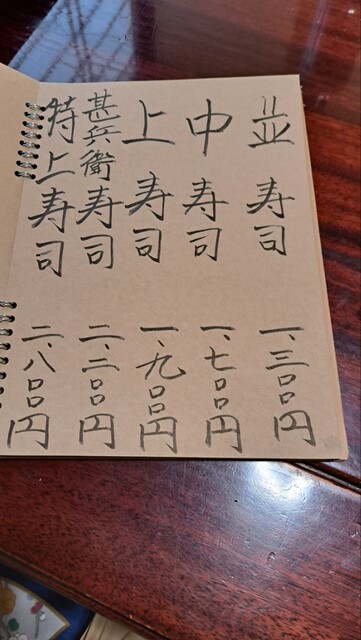 並寿司 一、三〇〇円
中寿司 一、七〇〇円
上寿司 一、九〇〇円
甚兵衛寿司 二、二〇〇円
特上寿司 二、八〇〇円